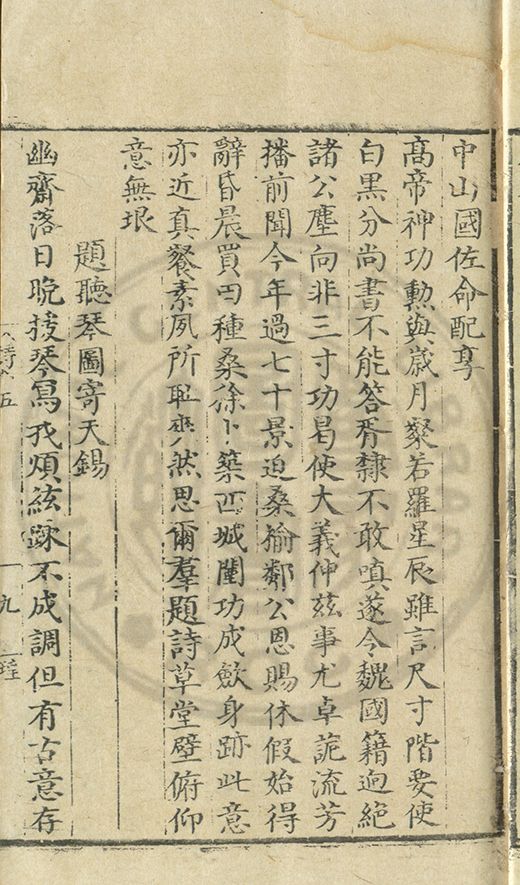 中山國佐命配享
高帝神功勲與歲月粲若羅星辰雖言尺寸階要使
白黒分尚書不能答胥隸不敢嗔遂令魏國籍逈絶
諸公塵向非三寸功曷使大義伸兹事尤卓詭流芳
播前聞今年過七十景迫桑榆鄰公恩賜休假始得
辭昏晨買田種桑徐卜築匹城闉功成斂身跡此意
亦近真餐素夙所恥爽然思爾羣題詩草堂壁俯仰
意無垠
題聽琴圖寄天錫
幽齋落日晩援琴寫我煩絃踈不成調但有古意存
五
九